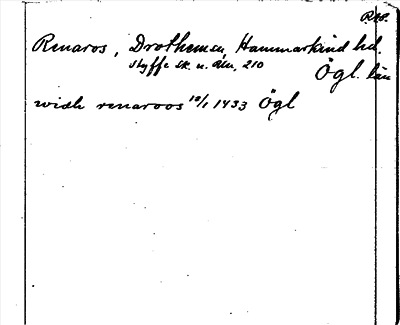 Renaros, Drothemsn, Hammarkind hd.
Styffe Sk. u. Un., 210
Ögl. län
widh renaroos 12/1 1433 Ögl